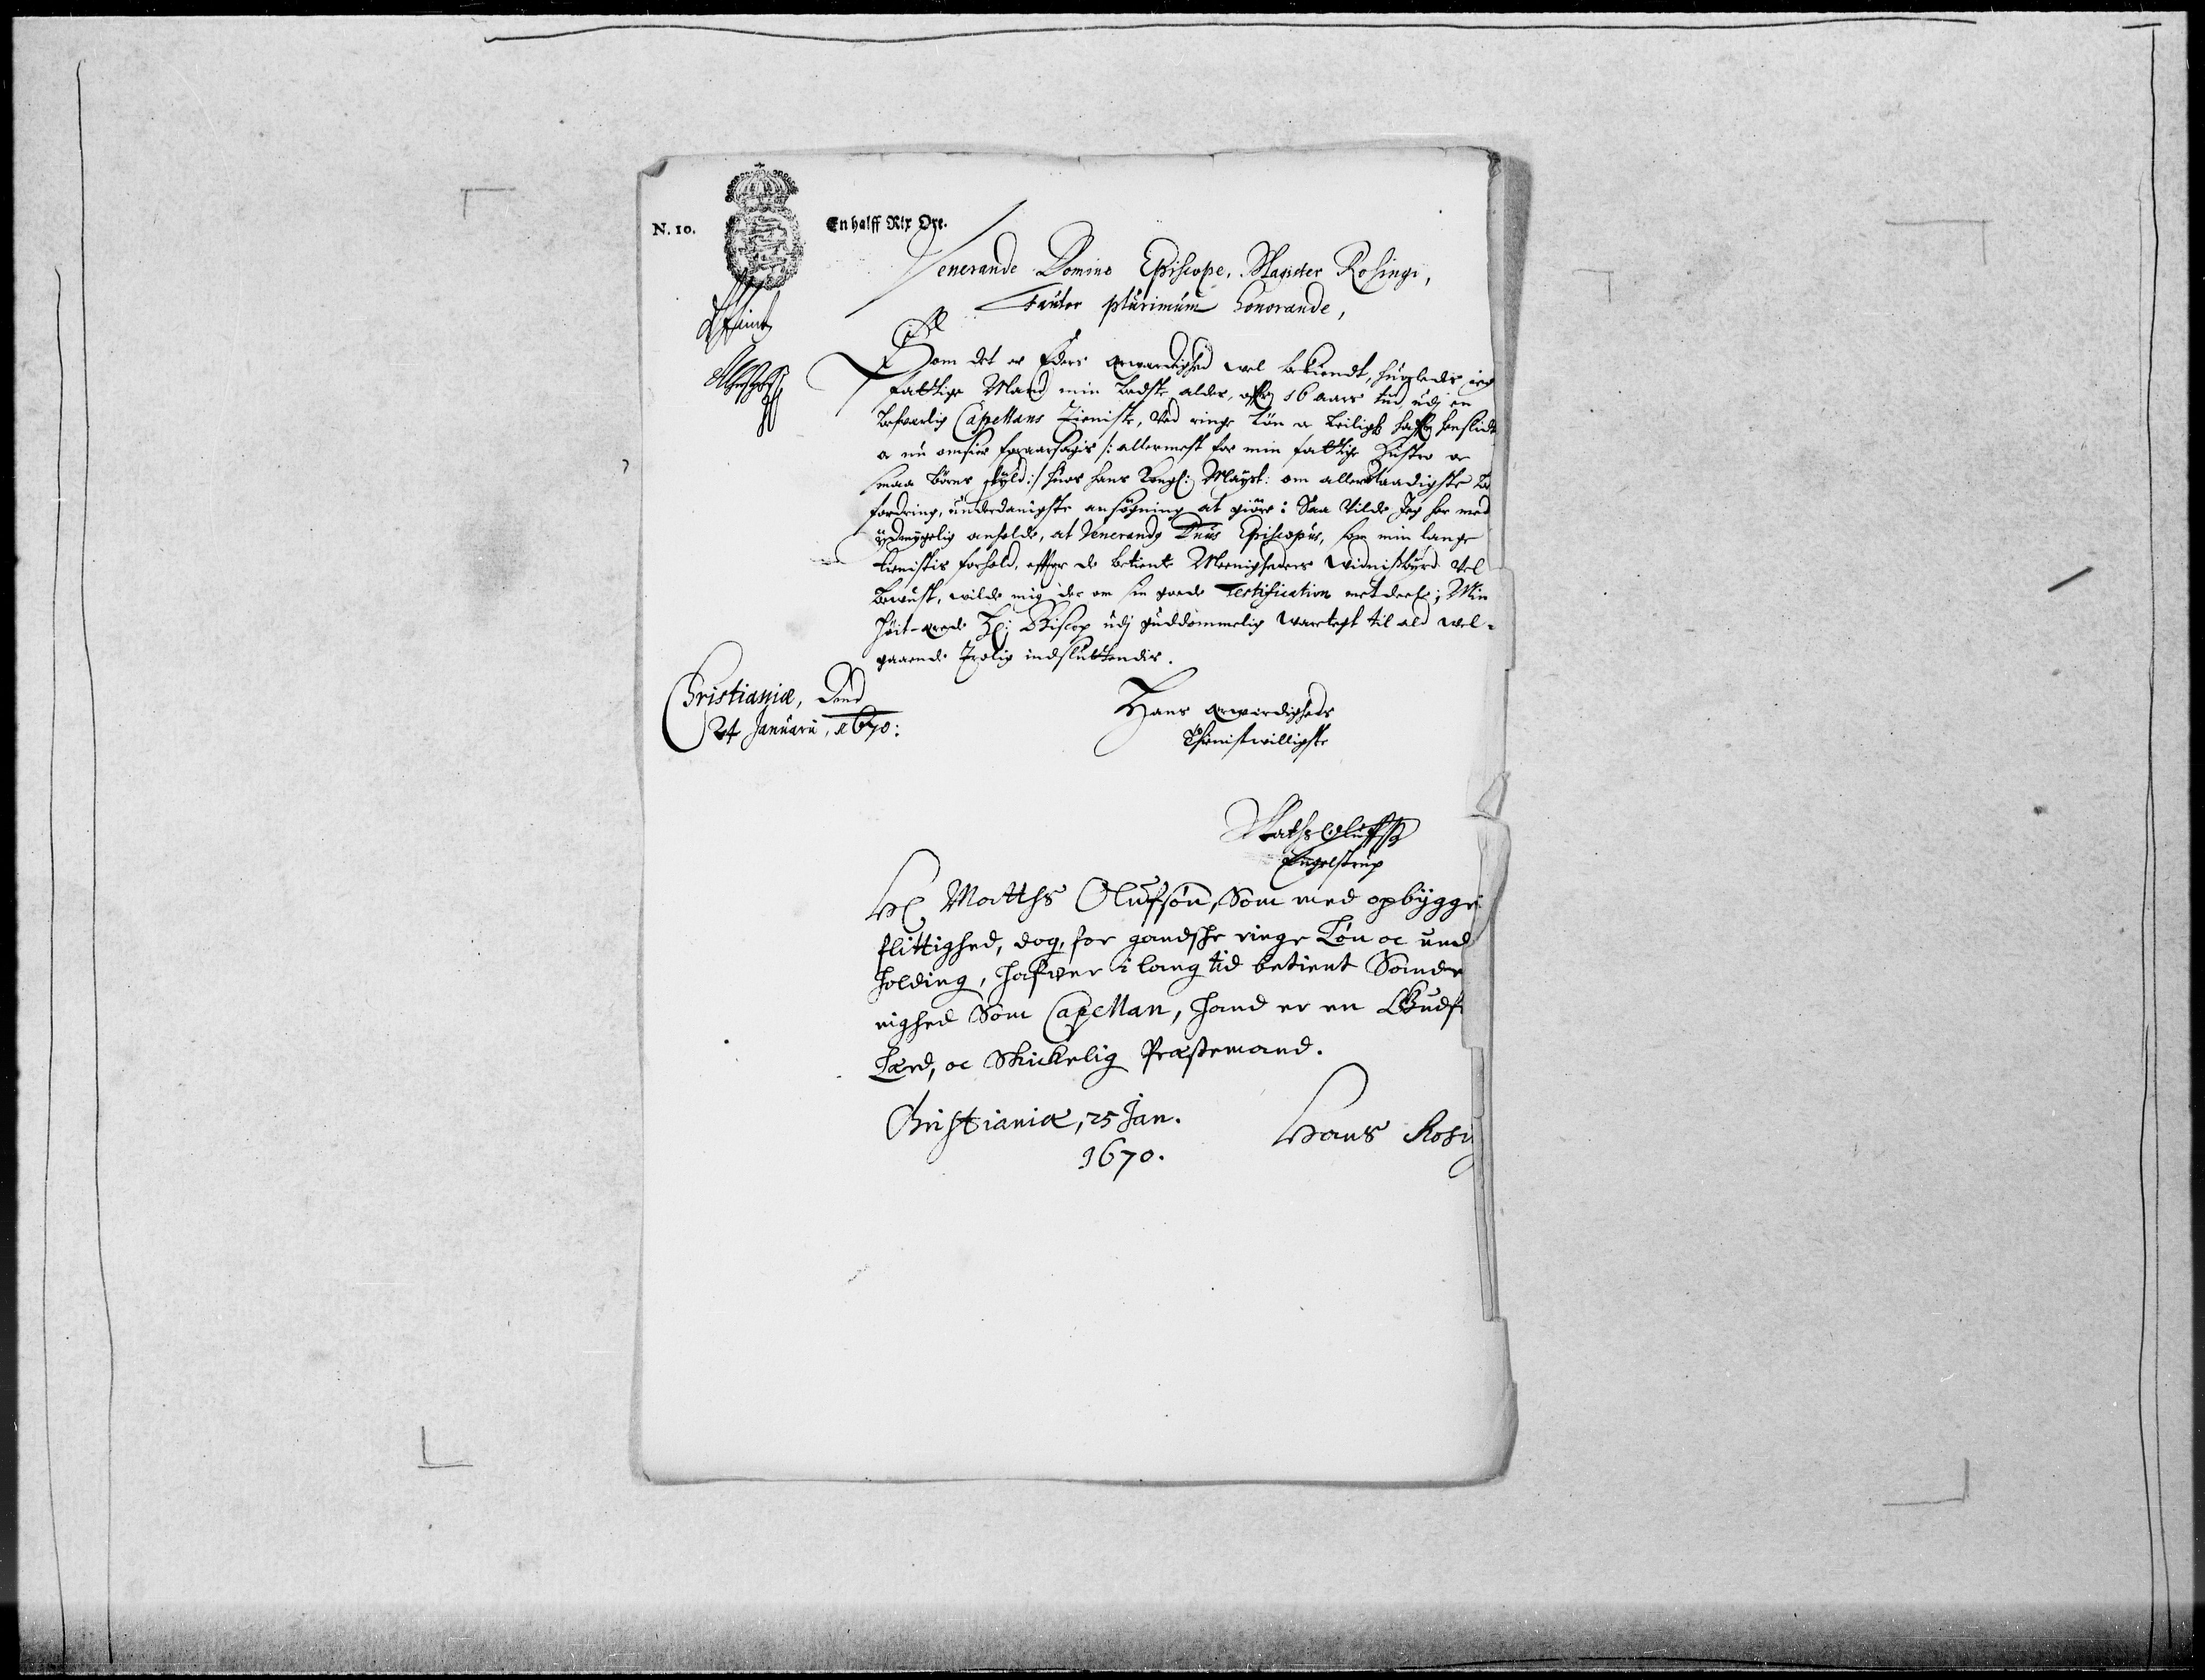 N. 10.
En halff Rix Ort.
Venerande Domine Episcope, Magister Rosingi,
Fautor plurimum honorande,
Som det er Eders Ærwærdighed wel bekiendt, huorledis ieg
fattige Mand min beste alder, offuer 16 aars tid, udj en
besværlig Capellans Tieniste, ved ringe Løn oc
oc nu /: allermest for min fattige Hustro oc
smaa børns skyld :/ huos hans Kongl: Mayst: om allernaadigste be
fordring, underdanigste ansøgning at giøre: Saa vilde Jeg her med
ydmygelig anholde, at Venerandus Dnus Episcopus, som min lange
tienistis forhold, efter de betiente Menigheders widnißbyrd vel
bewust, wilde mig der om sin goede Testification meddeele; Min
høit-ærede Hr: Biscop udj guddommelig waretegt til ald wel-
gaaende Trolig indsluttendis.
Christianiæ, Dend
24 Januarii, A 1670:
Hans Ærwerdigheds
Thienistwilligste
Mats Oluffß
Engelstrup
Hr Matths Olufsøn, Som med opbyggel
flittighed, dog, for gandske ringe Løn oc und
holding, hafver i lang tid betient Sønder
nighed Som Capellan, hand er en Gudf
Lærd, oc Skickelig Præstemand.
Christianiæ, 25 Jan.
1670.
Hans Rosi